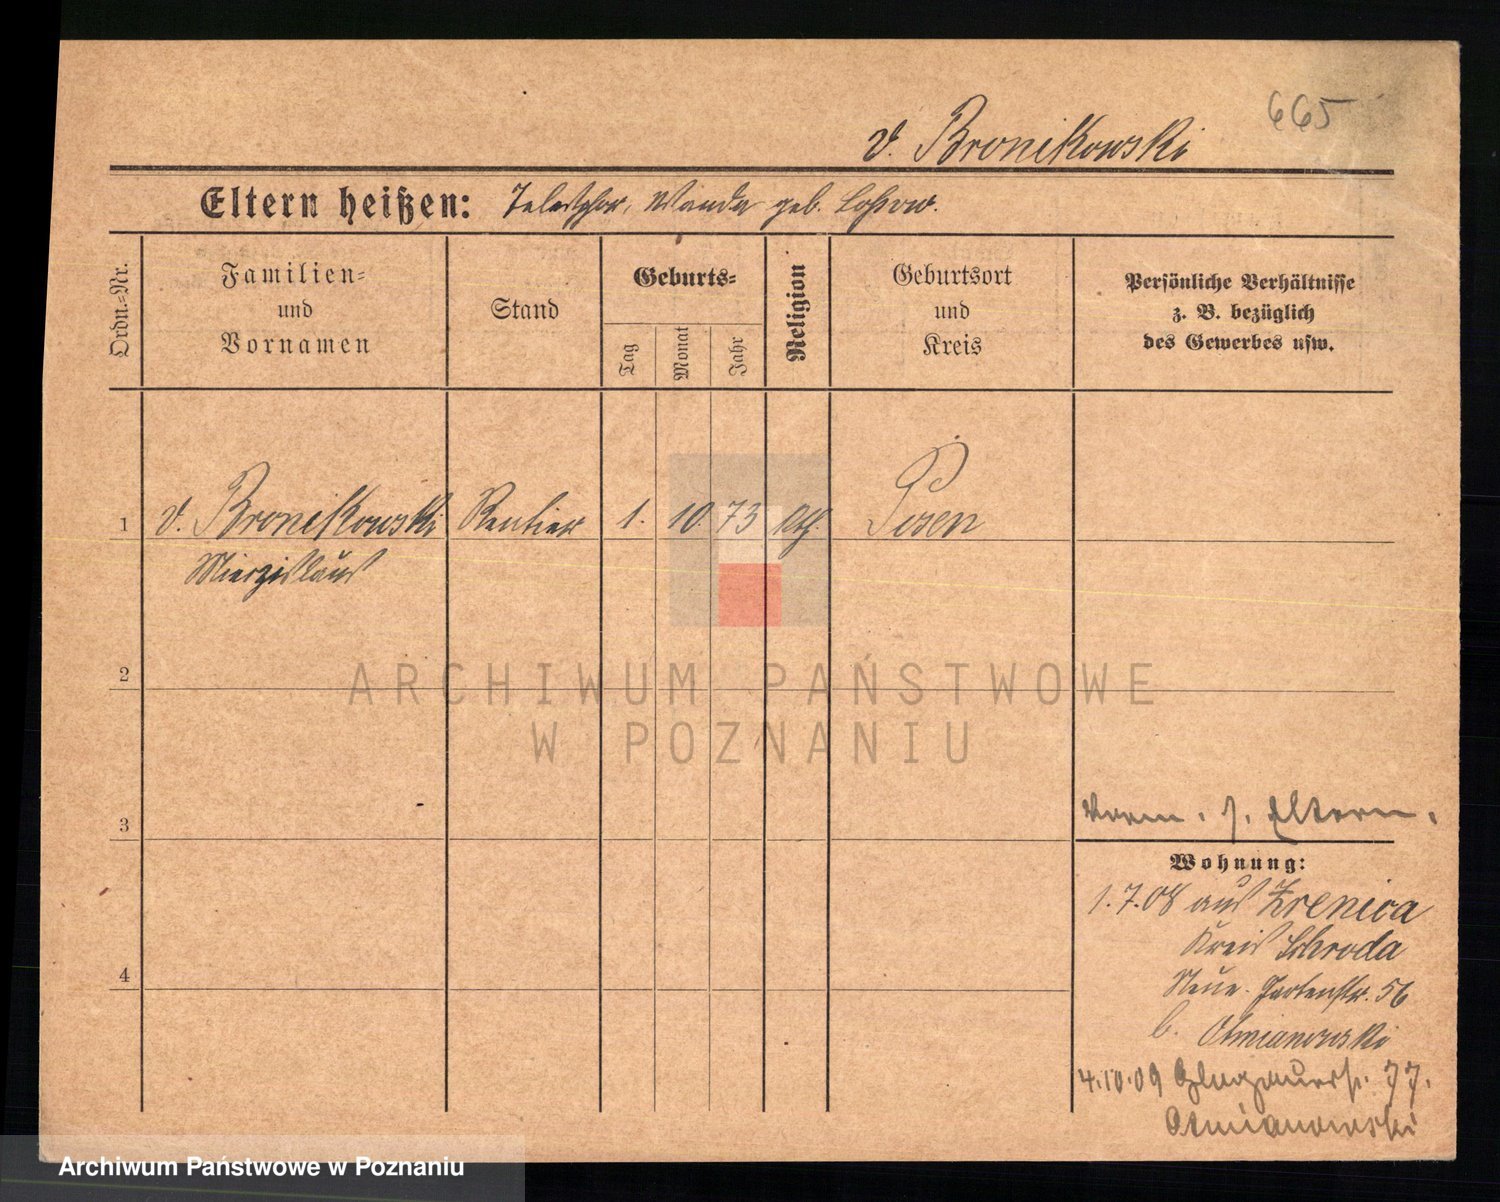 665
v. Bronikowski
Eltern heißen: Telesphor, Wanda geb. Lossow.
Ordn.=Nr.
Familien=
und
Vornamen
Stand
Geburts=
Tag
Monat
Jahr
Religion
Geburtsort
und
Kreis
Persönliche Verhältnisse
z. B. bezüglich
des Gewerbes usw.
1 v. Bronikowski Rentier 1. 10. 73 kth. Posen
Mieczislaus
2
ARCHIWUM PAŃSTWOWE
W POZNANIU
3
Verm. s. Eltern.
Wohnung:
1.7.08 aus Zrenica
Kreis Schroda
4
Neue Gartenstr. 56
b. Otmianowski
4.10.09 Glogauerstr. 77.
Otmianowski
Archiwum Państwowe w Poznaniu